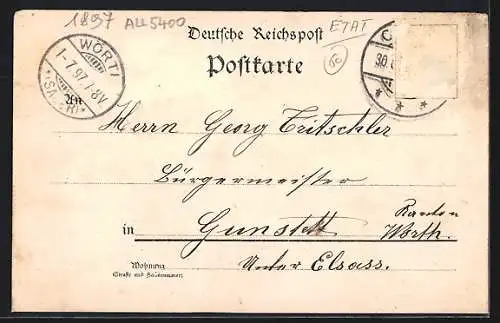 1897 ALL 5400
ETAT
Deutsche Reichspost
Postkarte
WÖRTH
1-7.97.7-8V.
*(SAUER)*
30.
An
Herrn Georg Tritschler
Bürgermeister
in Gunstett
Kanton
Wörth.
Unter Elsass.
Wohnung
(Straße und Hausnummer)